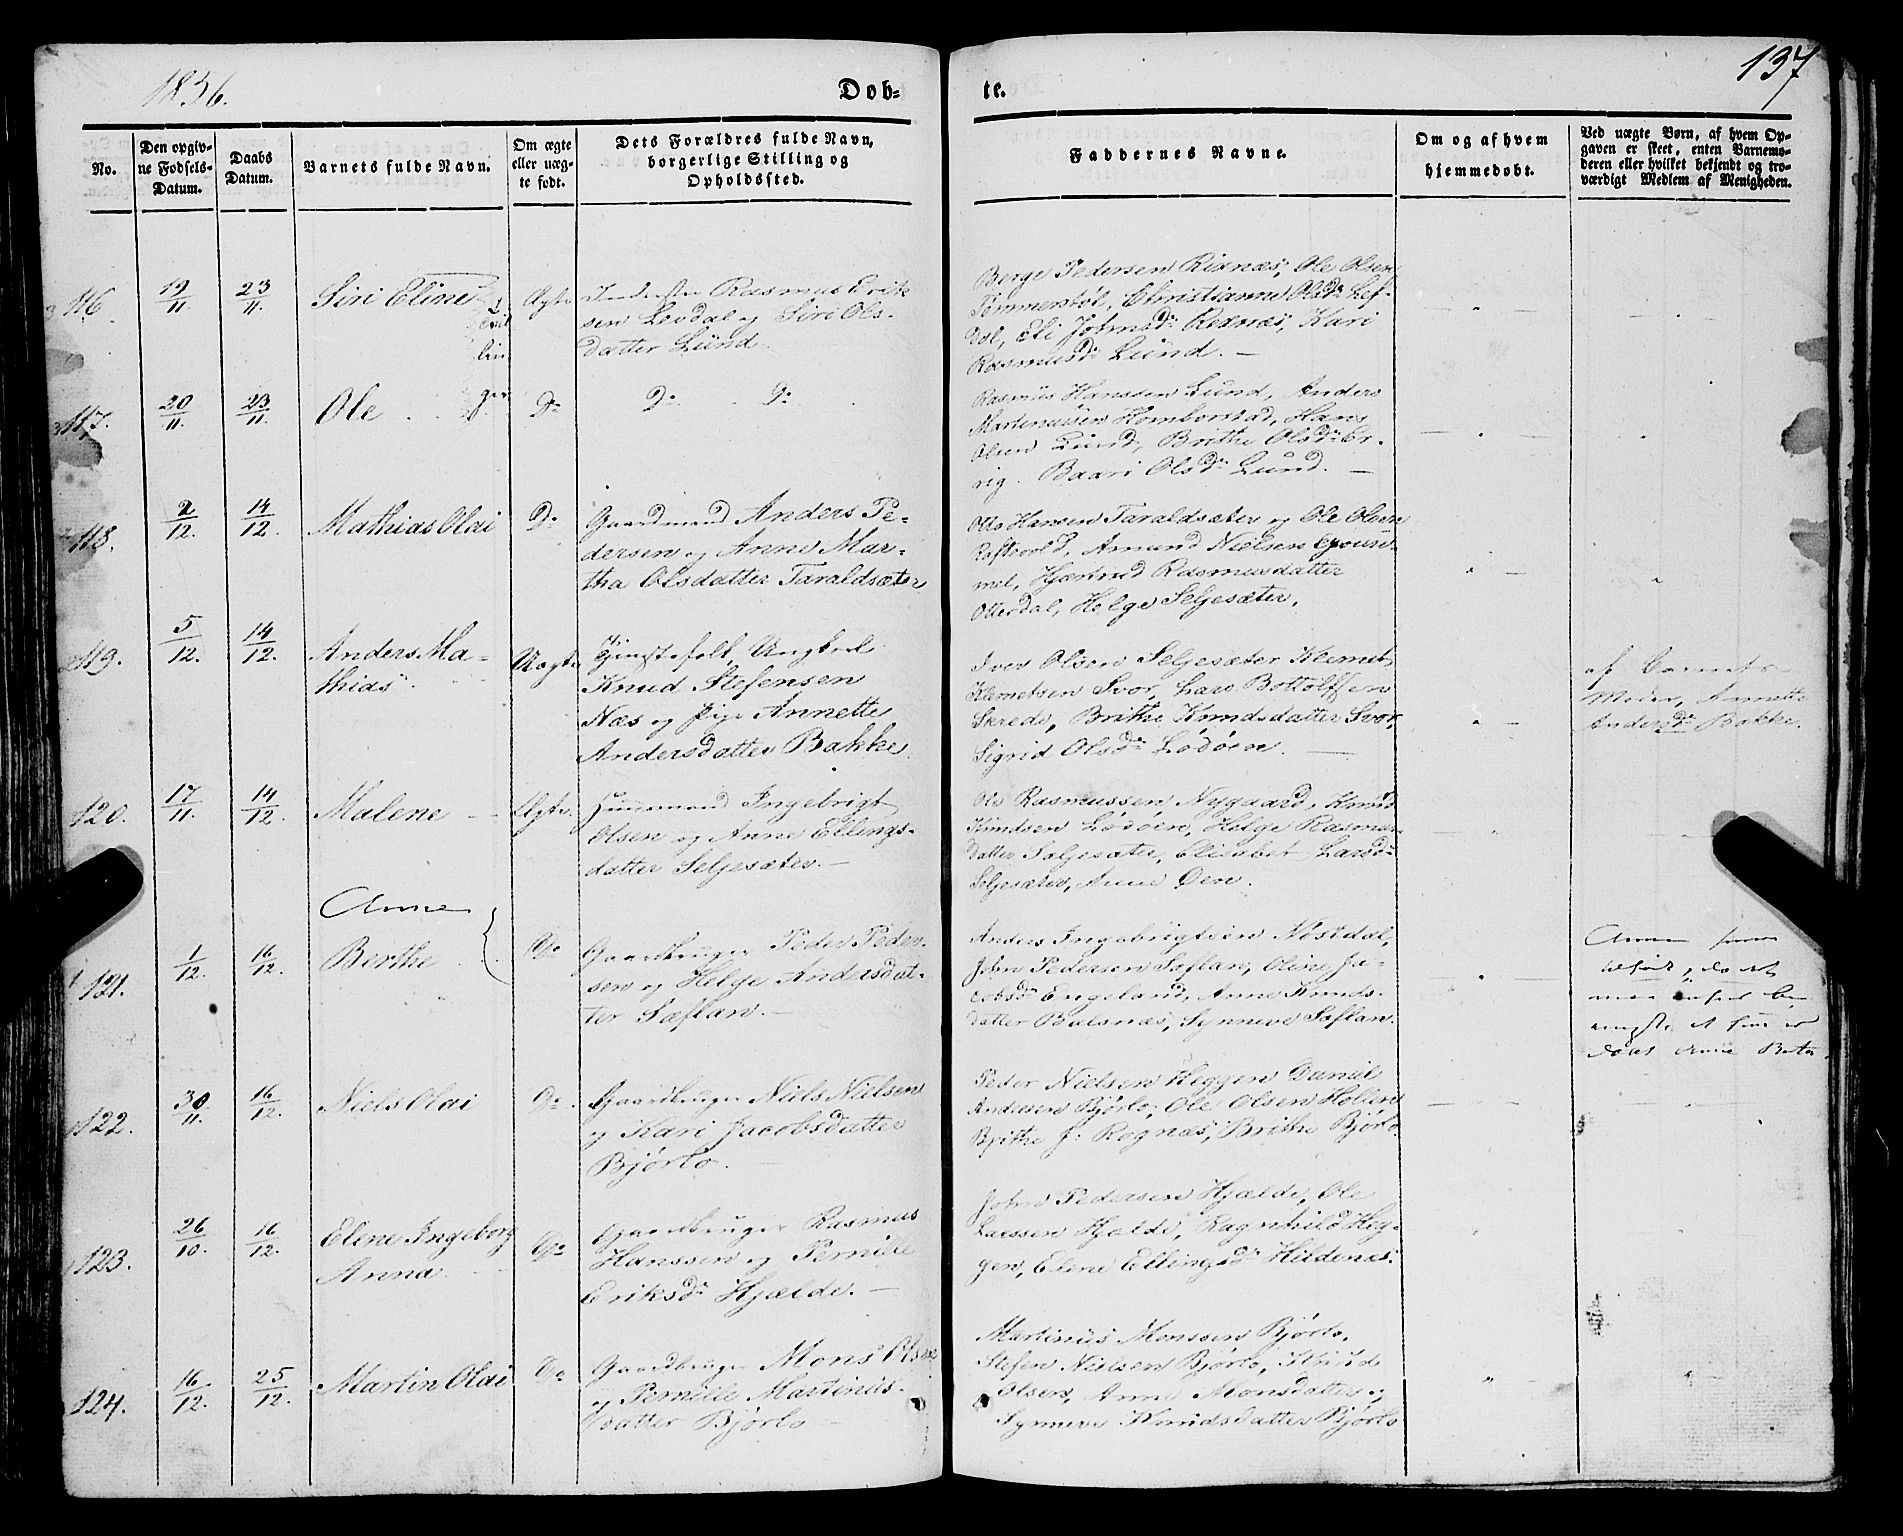 1856.
Dob-
te.
137
No.
Den opgiv-
ne Fødsels-
Datum.
Daabs
Datum.
Barnets fulde Navn.
Om ægte
eller uæg-
te født.
Dets Forældres fulde Navn,
borgerlige Stilling og
Opholdssted.
Faddernes Navne.
Om og af hvem
hjemmedøbt.
Ved uægte Børn, af hvem Op-
gaven er skeet, enten Barnemo-
deren eller hvilket bekjendt og tro-
værdigt Medlem af Menigheden.
116.
19/11
23/11.
Siri Eline
Ægte
Rasmus Erik
sen Levdal og Siri Ols-
datter Lund.
Børge Pedersen Rixnæs, Ole Olsen
Tømmerstøl, Christianne Olsd. Lef-
dal, Eli Johnsd. Rexnæs, Kari
Rasmusd. Lund. —
117.
20/11.
23/11.
Ole
Do
Do Do
Rasmus Hanssen Lund, Anders
Martinussen Homborstad, Hans
Olsen Lund, Brithe Olsd. Er-
vig. Baari Olsd. Lund. —
118.
2/12.
14/12.
Mathias Olai
Do
Gaardmand Anders Pe-
dersen og Anne Mar-
tha Olsdatter Taraldsæter
Otto Hansen Taraldsæter og Ole Olsen
Raftevold, Amund Nielsen
mel, Rasmusdatter
Otterdal, Helge Seljesæter.
119.
5/12.
14/12.
Anders Ma-
thias
Uægte
Tjenstefolk, Ungkarl
Knud Stefensen
Næs og Pige Annette
Andersdatter Bakke.
Iver Olsen Seljesæter, Klemet
Klemetsen Svor, Lars Bottolfsen
Skrede, Brithe Knudsdatter Svor,
Sigrid Olsd. Lødøen.
af Barnets
Moder, Annette
Andersd. Bakke.
120.
17/11.
14/12.
Malene
Ægte.
Huusmand Ingebrigt
Olsen og Anne Ellings-
datter Seljesæter. —
Ole Rasmussen Nygaard, Knud
Knudsen Lødøen, Helge Rasmus-
datter Seljesæter, Elisabet Larsd.
Seljesæter, Anne Øen.
121.
1/12.
16/12.
Anne
Berthe
Do
Gaardbruger Peder Peder-
sen og Helge Andersdat-
ter Sæflan. —
Anders Ingebrigtsen Nøstdal,
John Pedersen Sæflan, Oline Ja-
cobsd. Engeland, Anne Knuds-
datter Balsnæs, Synneve Sæflan.
Anne
døbt Anne Berte.
122.
30/11.
16/12.
Niels Olai
Do
Gaardbruger Niels Nielsen
og Kari Jacobsdatter
Bjørlo.
Peder Nielsen Heggen, Daniel
Andersen Bjørlo, Ole Olsen Hollen
Brithe J. Rognæs, Brithe Bjørlo.
123.
26/10.
16/12.
Elene Ingeborg
Anna
Do
Gaardbruger Rasmus
Hanssen og Pernille
Eriksd. Hjælde. —
John Pedersen Hjælde, Ole
Larssen Hjælde, Ragnhild Heg-
gen, Elene Ellingsd. Hildenes.
124.
16/12.
25/12.
Martin Olai
Do
Gaardbruger Mons Olsen
og Pernille Martinus-
datter Bjørlo —
Martinus Monssen Bjørlo,
Stefen Nielsen Bjørlo, Knud
Olsen, Anne Monsdatter og
Synneve Knudsdatter Bjørlo